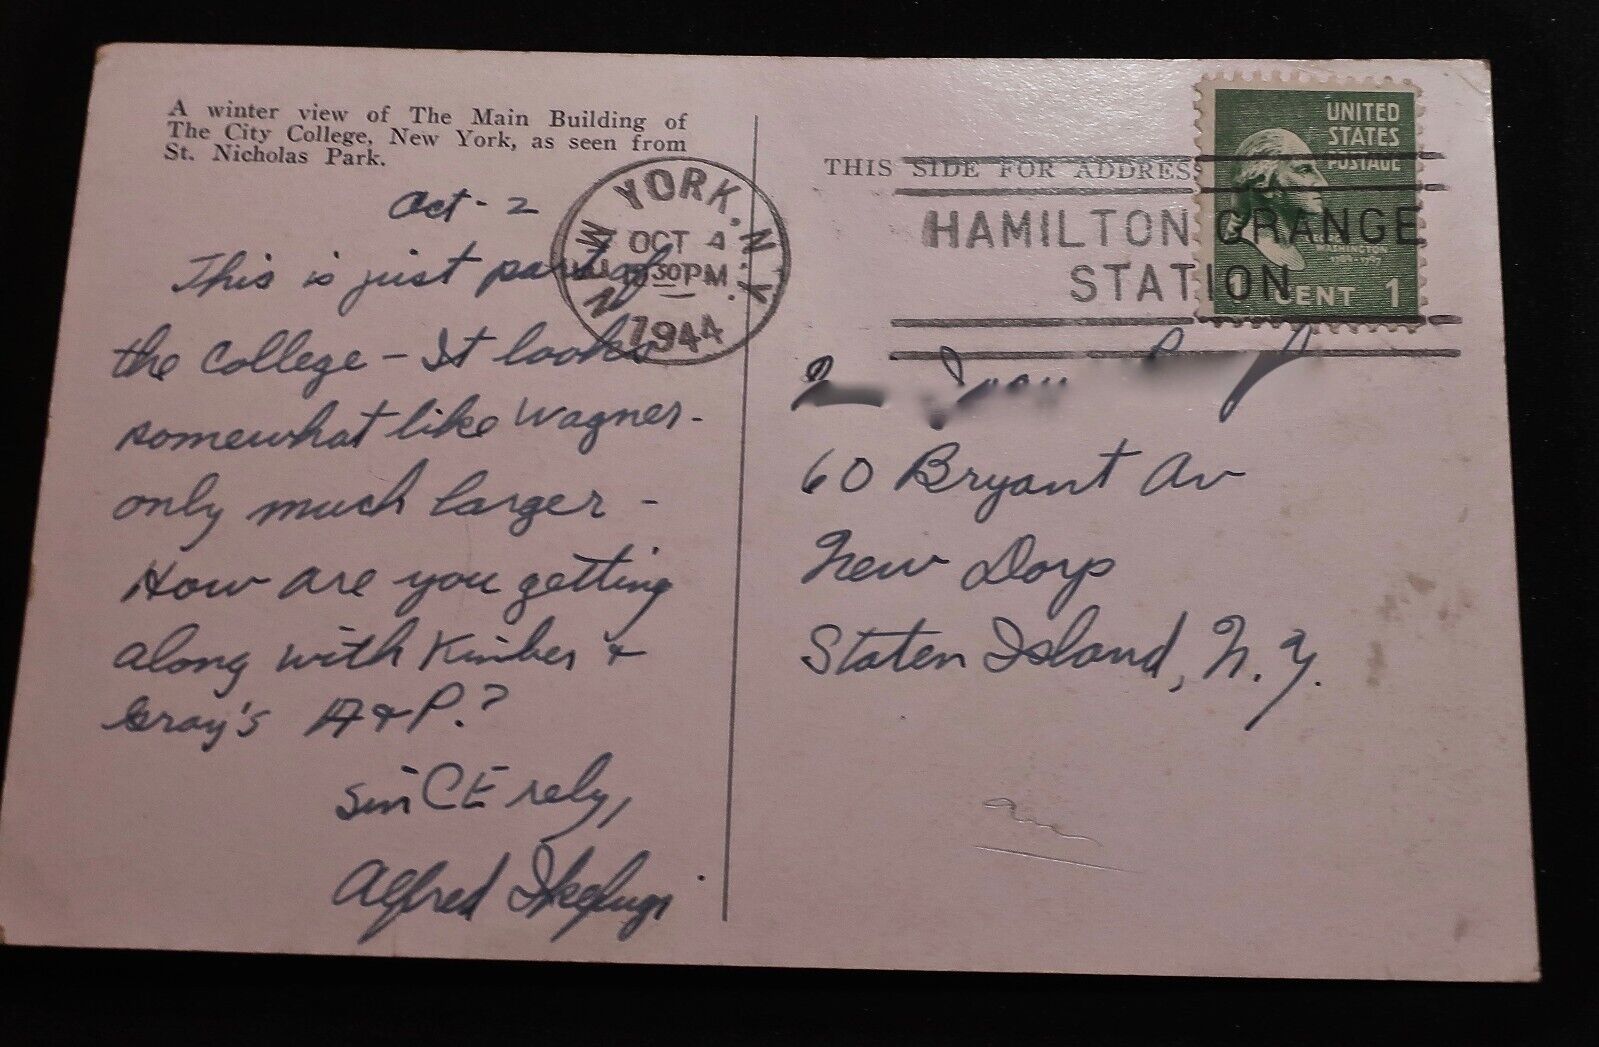 A winter view of The Main Building of
The City College, New York, as seen from
St. Nicholas Park.
Oct - 2
This is just part of
the College - It looks
somewhat like Wagner -
only much larger -
How are you getting
along with Kimber &
Gray's A & P.?
sinCErely,
Alfred
NEW YORK, N.Y.
OCT 4
30 PM
1944
THIS SIDE FOR ADDRES
HAMILTON GRANGE
STATION
UNITED
STATES
POSTAGE
WASHINGTON
1 CENT 1
60 Bryant Av
New Dorp
Staten Island, N.Y.